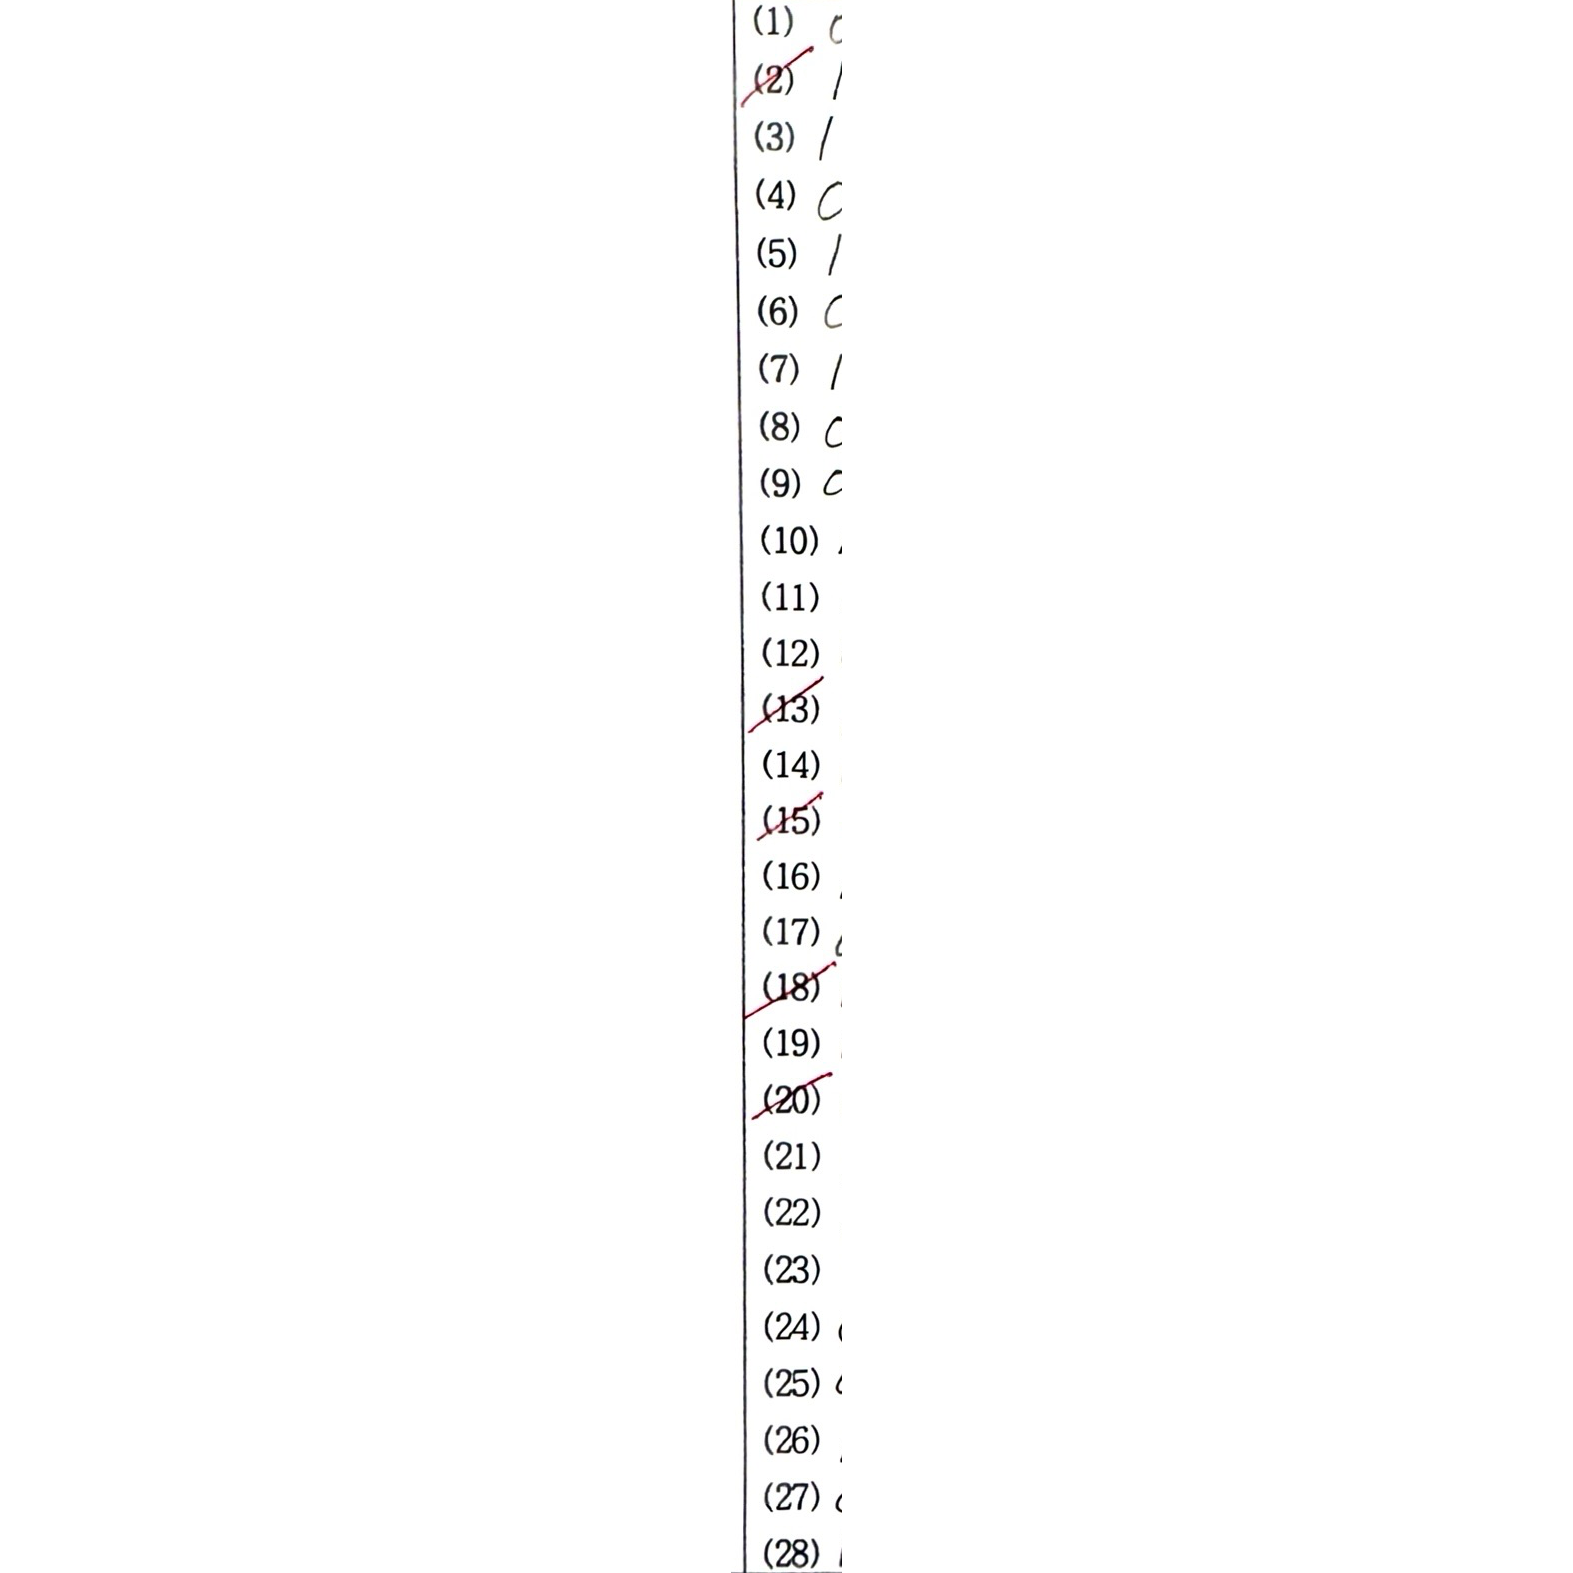 (1) 0
(2) 1
(3) 1
(4) 0
(5) 1
(6) 0
(7) 1
(8) 0
(9) 0
(10)
(11)
(12)
(13)
(14)
(15)
(16)
(17)
(18)
(19)
(20)
(21)
(22)
(23)
(24)
(25)
(26)
(27)
(28)